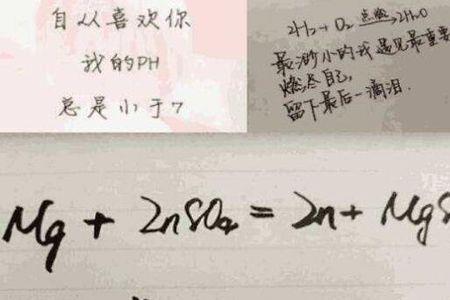 自从喜欢你
我的PH
总是小于7
2H₂+O₂ 点燃 2H₂O
最渺小的我遇见最重要
燃尽自己,
留下最后一滴泪.
Mg + ZnSO₄ = Zn + MgS